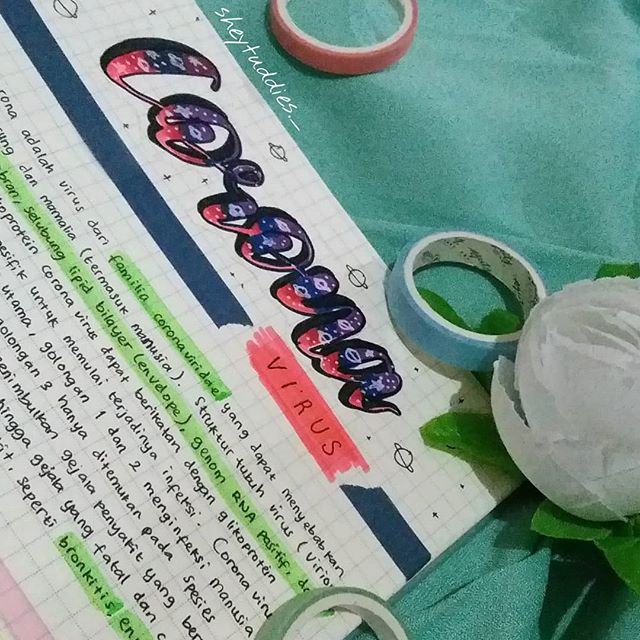 sheytuddies._
Corona
VIRUS
rona adalah virus dari familia coronaviridae yang dapat menyebabkan
dan mamalia (termasuk manusia). Struktur tubuh virus (virio
bran, selubung lipid bilayer (envelope), genom RNA positif, da
koprotein corona virus dapat berikatan dengan glikoprotein
esifik untuk memulai terjadinya infeksi. Corona viru
utama, golongan 1 dan 2 menginfeksi manusia
golongan 3 hanya ditemukan pada spesies
menimbulkan gejala penyakit yang ber
hingga gejala yang fatal dan c
seperti bronkitis, en